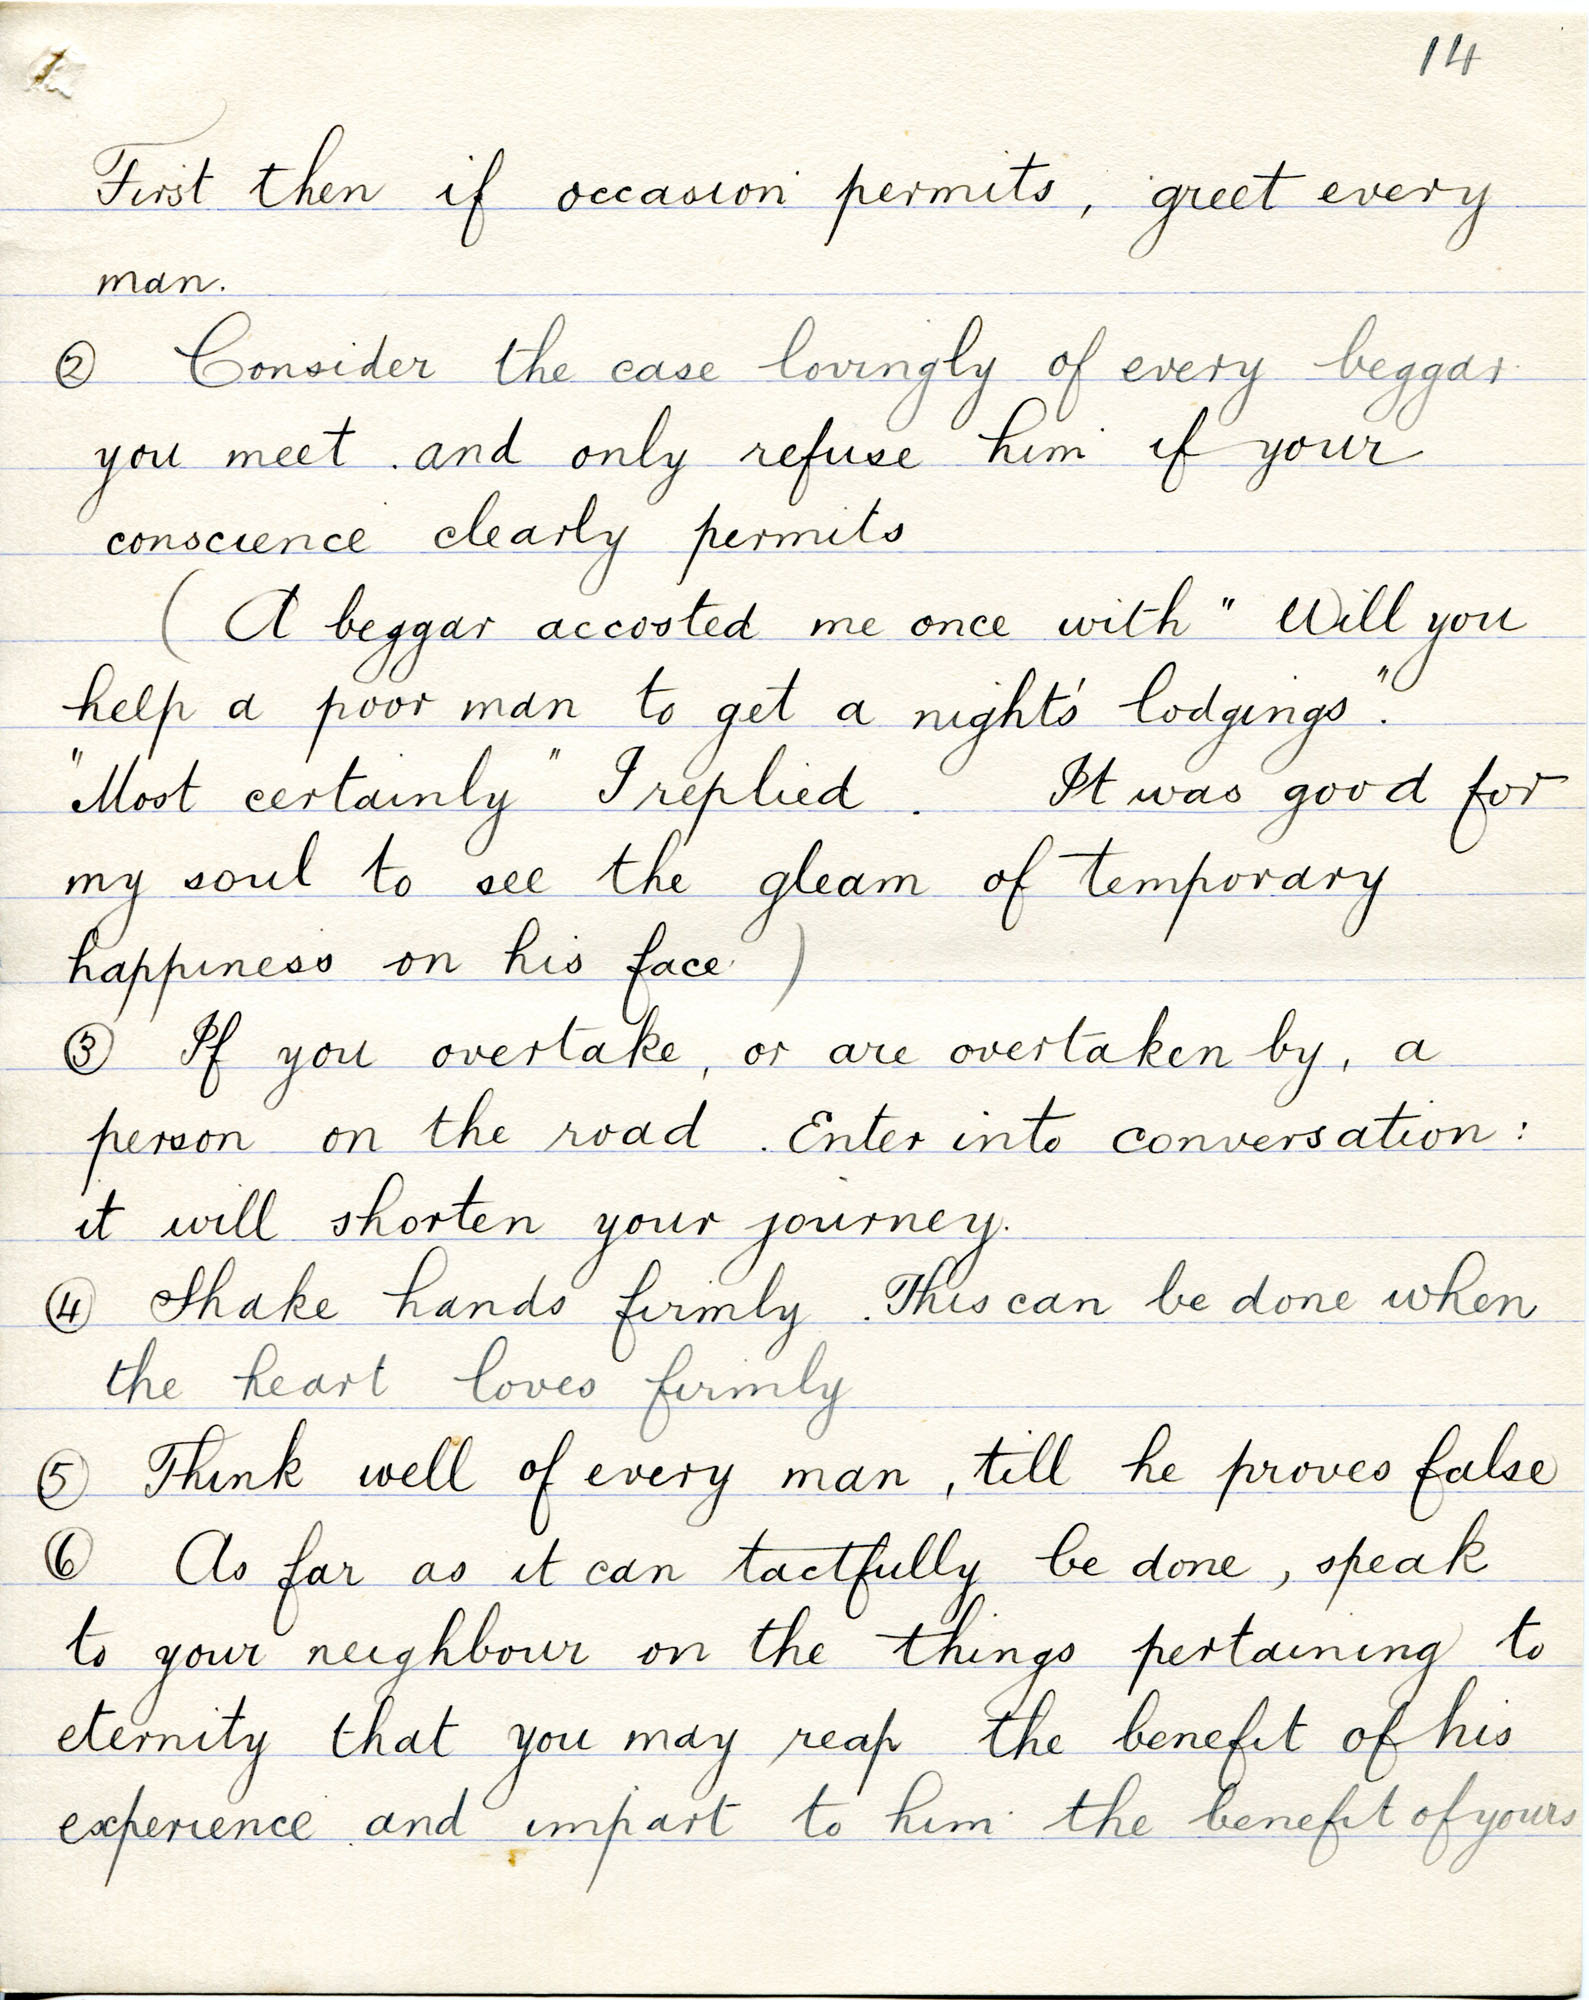 14
First then if occasion permits, greet every
man.
② Consider the case lovingly of every beggar
you meet . and only refuse him if your
conscience clearly permits
( A beggar accosted me once with " Will you
help a poor man to get a night's lodgings".
"Most certainly" I replied . It was good for
my soul to see the gleam of temporary
happiness on his face )
③ If you overtake, or are overtaken by, a
person on the road . Enter into conversation :
it will shorten your journey.
④ Shake hands firmly . This can be done when
the heart loves firmly
⑤ Think well of every man , till he proves false
⑥ As far as it can tactfully be done , speak
to your neighbour on the things pertaining to
eternity that you may reap the benefit of his
experience and impart to him the benefit of yours